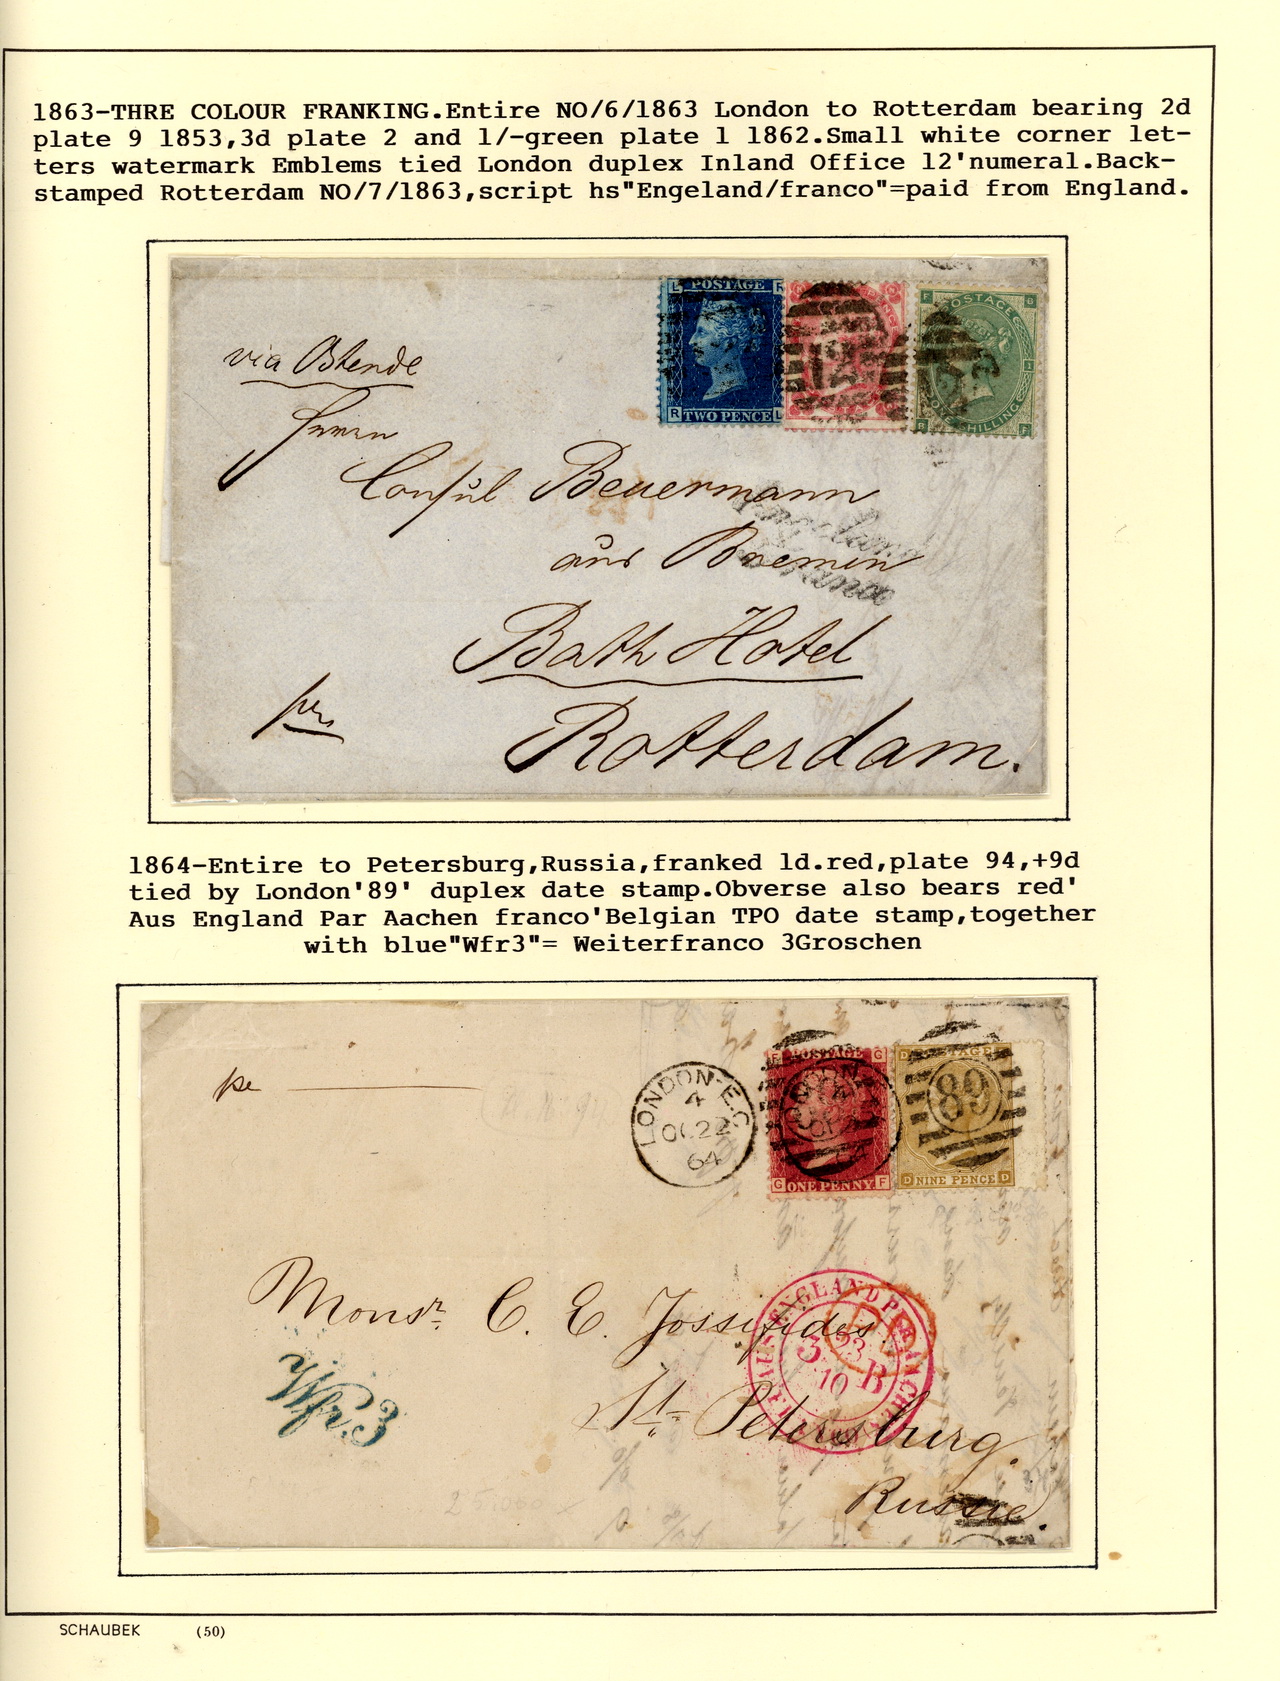 1863-THRE COLOUR FRANKING.Entire NO/6/1863 London to Rotterdam bearing 2d
plate 9 1853,3d plate 2 and 1/-green plate 1 1862.Small white corner let-
ters watermark Emblems tied London duplex Inland Office 12'numeral.Back-
stamped Rotterdam NO/7/1863,script hs"Engeland/franco"=paid from England.
L POSTAGE R
R TWO PENCE L
12
F POSTAGE B
R ONE SHILLING F
via Ostende
Herrn
Consul Beuermann
aus Bremen
Engeland
franco
Bath Hotel
Rotterdam.
1864-Entire to Petersburg,Russia,franked 1d.red,plate 94,+9d
tied by London'89' duplex date stamp.Obverse also bears red'
Aus England Par Aachen franco'Belgian TPO date stamp,together
with blue"Wfr3"= Weiterfranco 3Groschen
LONDON-E.C
4
OC 22
64
F POSTAGE G
G ONE PENNY F
D POSTAGE
89
D NINE PENCE D
Monsr. C. E. Jossifides
AUS ENGLAND PER AACHEN
23
3 B
10
PD
Wfr.3
St. Petersburg.
Russie.
SCHAUBEK (50)